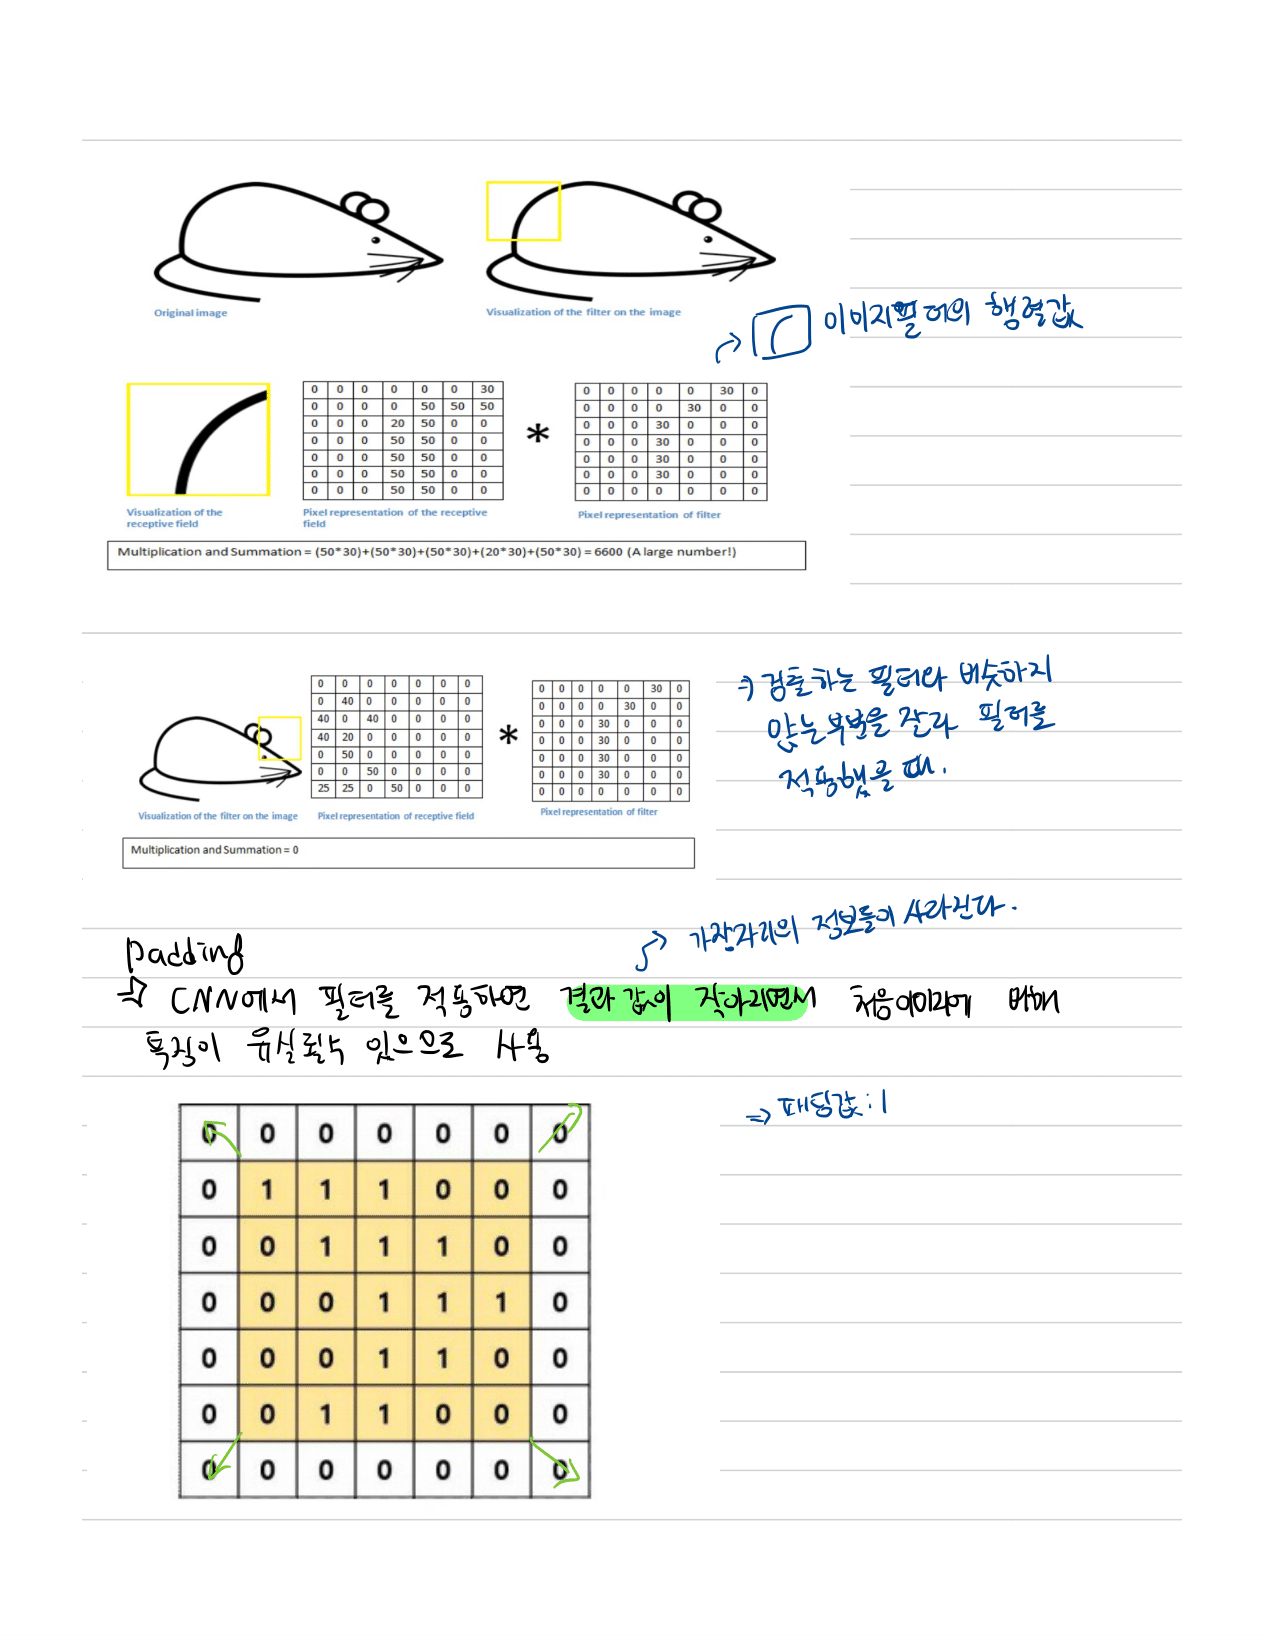 Original image
Visualization of the filter on the image
이미지필터의 행렬값
0 0 0 0 0 0 30
0 0 0 0 50 50 50
0 0 0 20 50 0 0
0 0 0 50 50 0 0
0 0 0 50 50 0 0
0 0 0 50 50 0 0
0 0 0 50 50 0 0
*
0 0 0 0 0 30 0
0 0 0 0 30 0 0
0 0 0 30 0 0 0
0 0 0 30 0 0 0
0 0 0 30 0 0 0
0 0 0 30 0 0 0
0 0 0 0 0 0 0
Visualization of the
receptive field
Pixel representation of the receptive
field
Pixel representation of filter
Multiplication and Summation = (50*30)+(50*30)+(50*30)+(20*30)+(50*30) = 6600 (A large number!)
0 0 0 0 0 0 0
0 40 0 0 0 0 0
40 0 40 0 0 0 0
40 20 0 0 0 0 0
0 50 0 0 0 0 0
0 0 50 0 0 0 0
25 25 0 50 0 0 0
*
0 0 0 0 0 30 0
0 0 0 0 30 0 0
0 0 0 30 0 0 0
0 0 0 30 0 0 0
0 0 0 30 0 0 0
0 0 0 30 0 0 0
0 0 0 0 0 0 0
⇒ 검출하는 필터와 비슷하지
않는 부분을 잘라 필터를
적용했을 때.
Visualization of the filter on the image
Pixel representation of receptive field
Pixel representation of filter
Multiplication and Summation = 0
가장자리의 정보들이 사라진다.
padding
⇒ CNN에서 필터를 적용하면 결과 값이 작아지면서 처음이미지에 비해
특징이 유실될수 있으므로 사용
⇒ 패딩값 : 1
0 0 0 0 0 0 0
0 1 1 1 0 0 0
0 0 1 1 1 0 0
0 0 0 1 1 1 0
0 0 0 1 1 0 0
0 0 1 1 0 0 0
0 0 0 0 0 0 0